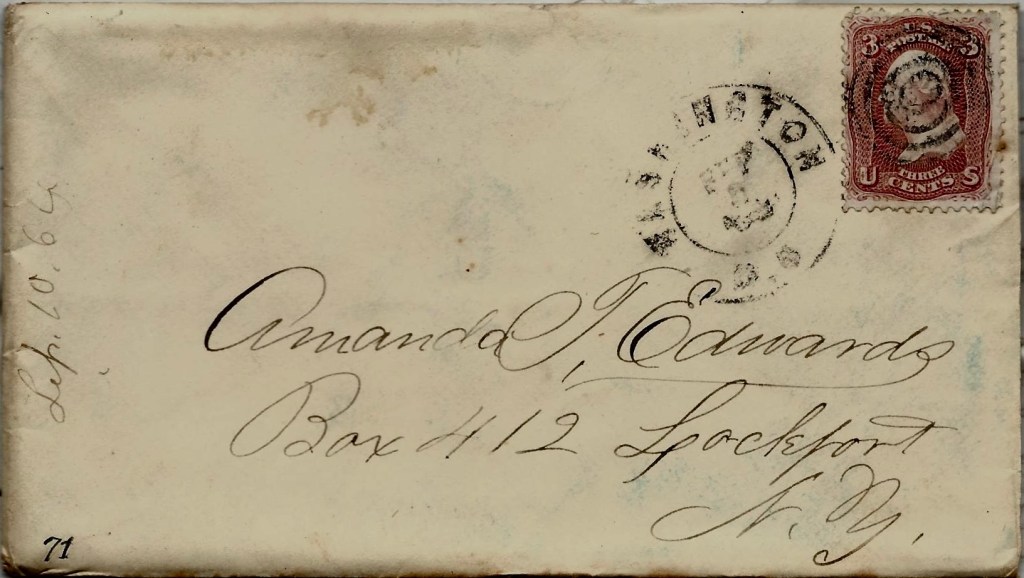 3 U.S. 3
POSTAGE
U THREE S
CENTS
WASHINGTON
D.C.
Amanda T. Edwards
Box 412 Lockport
N.Y.
Sep. 10. 64
71